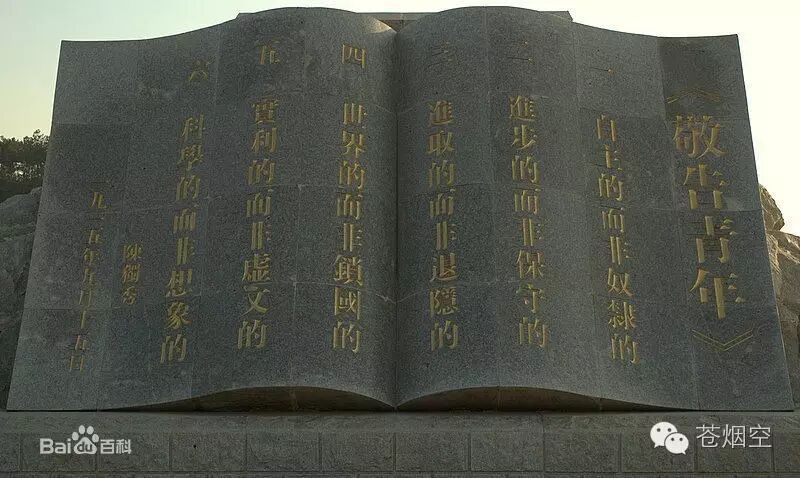 《敬告青年》
一 自主的而非奴隸的
二 進步的而非保守的
三 進取的而非退隱的
四 世界的而非鎖國的
五 實利的而非虛文的
六 科學的而非想象的
陳獨秀
一九一五年九月十五日
Bai百科
苍烟空